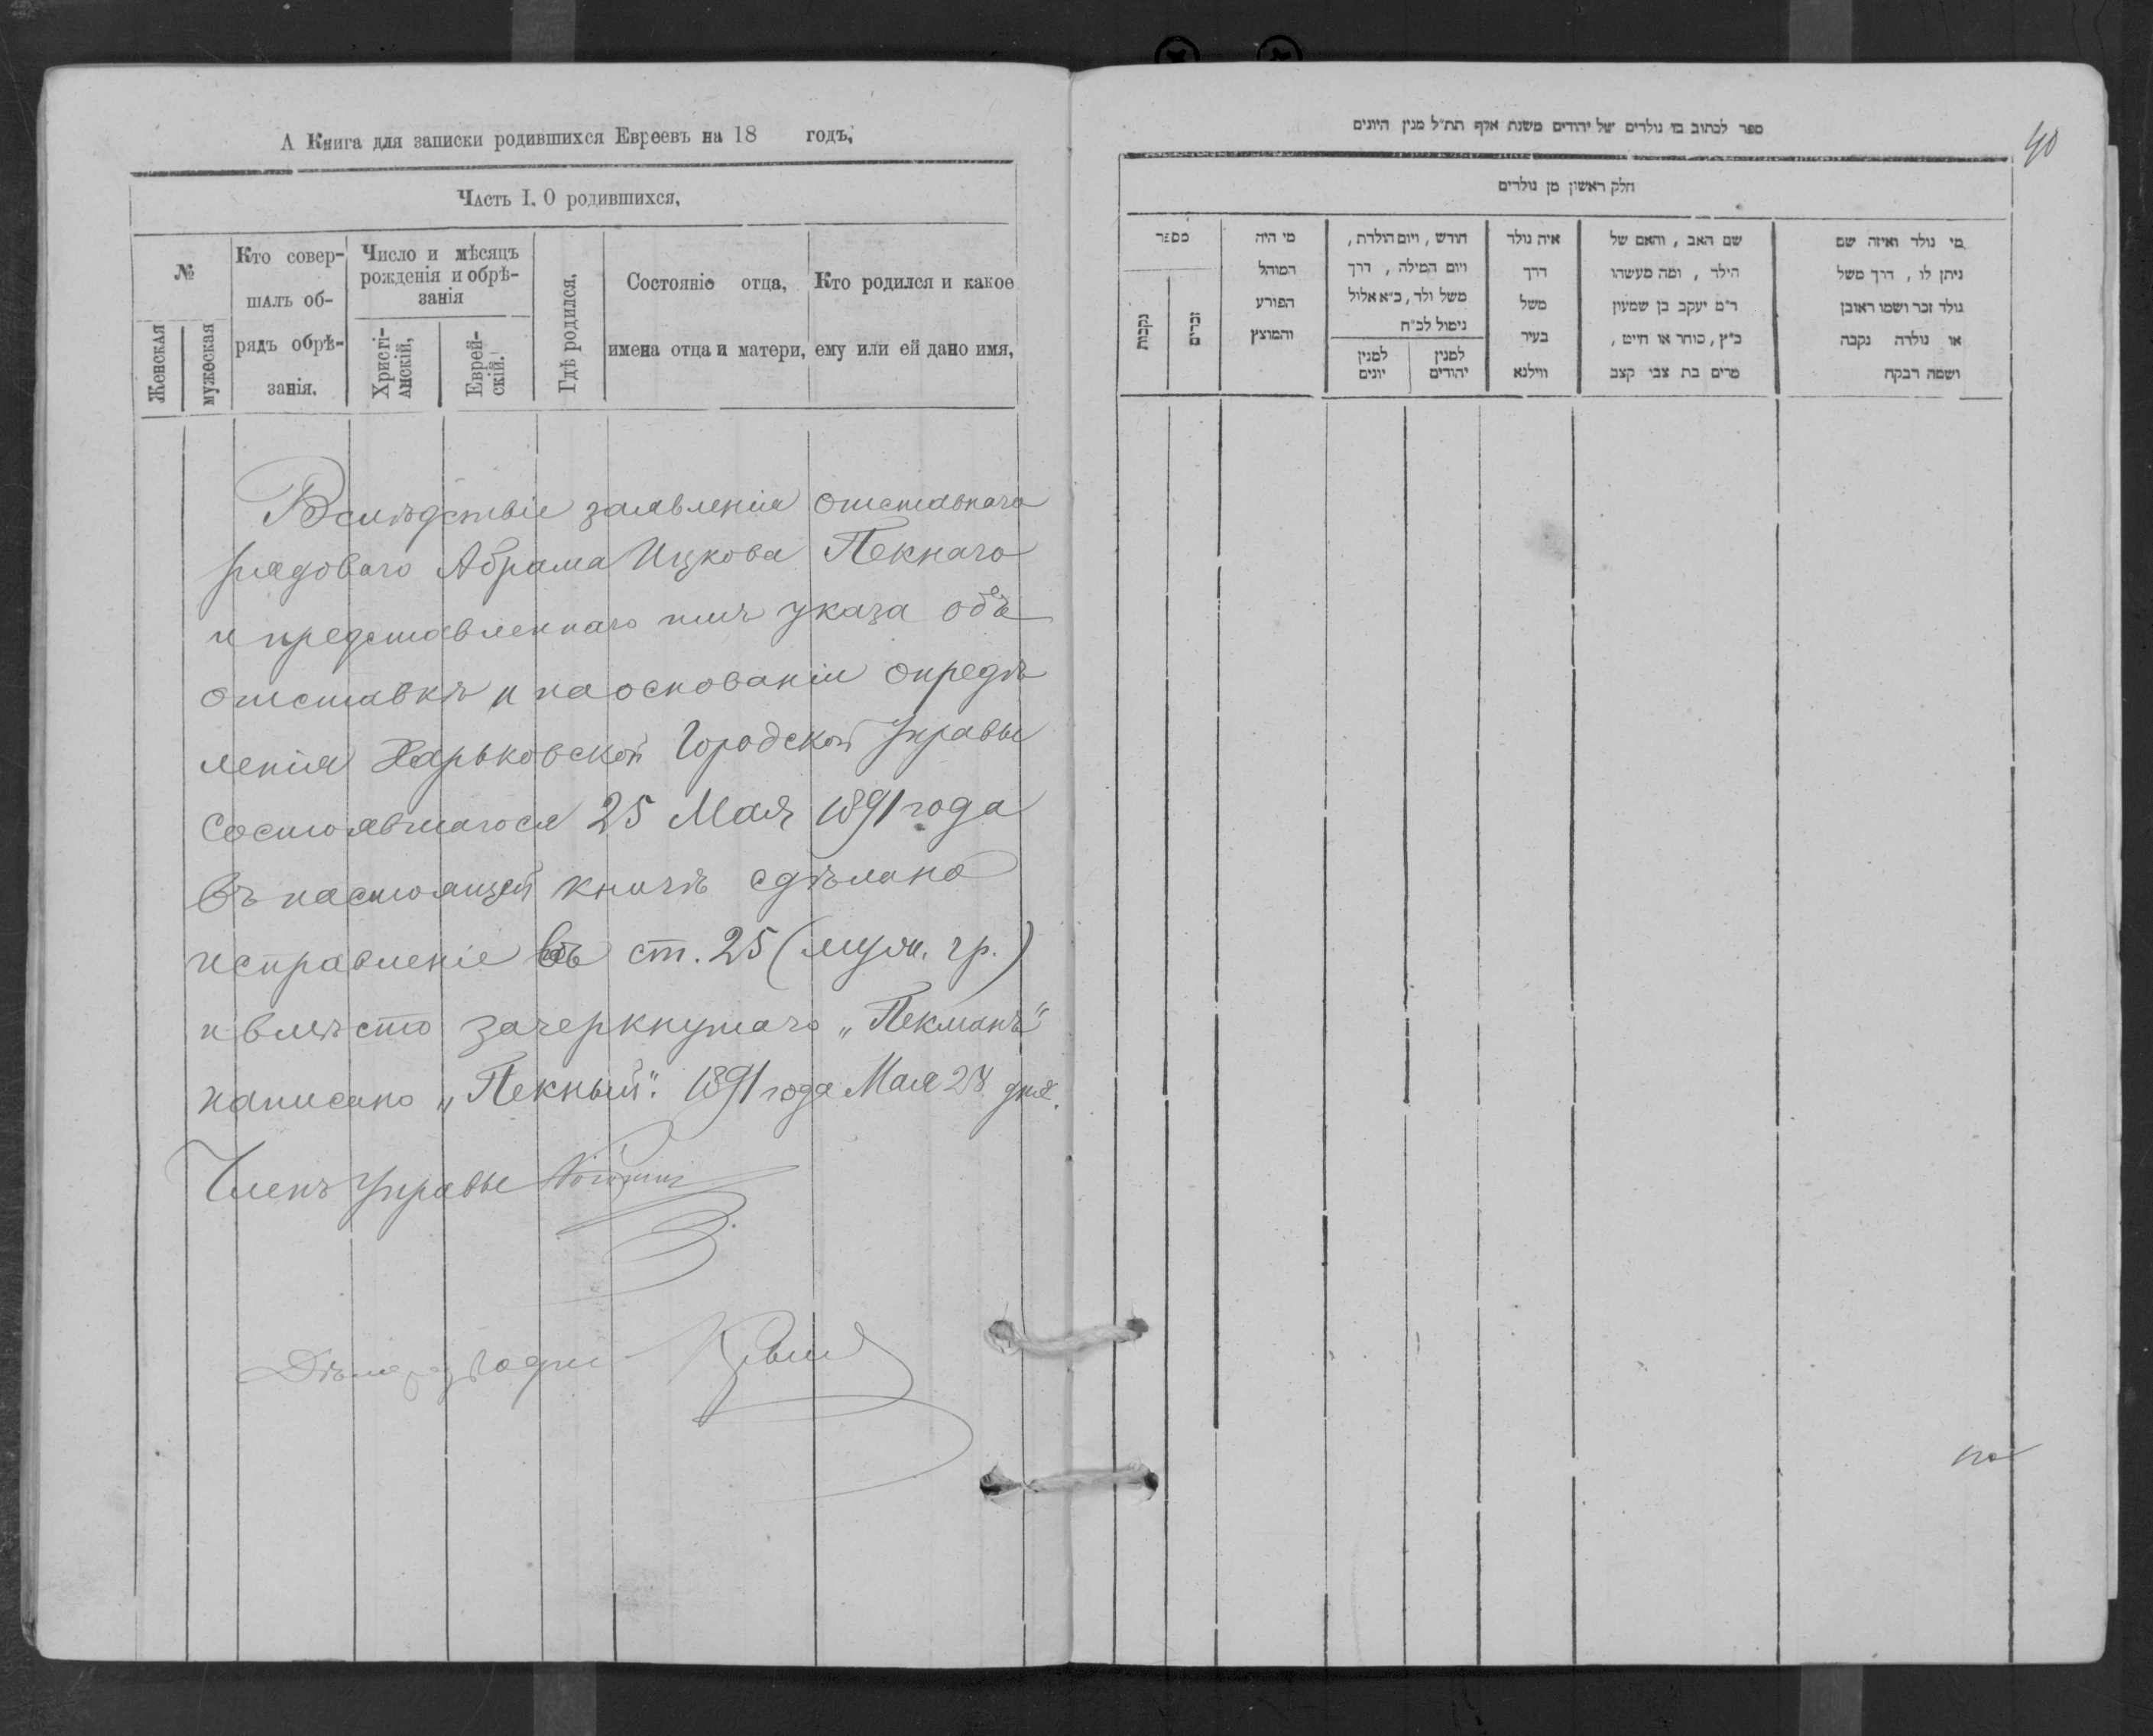 А Книга для записки родившихся Евреевъ на 18 годъ,
Часть I. О родившихся,
№
Женская
мужеская
Кто совер-
шалъ об-
рядъ обрѣ-
занія.
Число и мѣсяцъ
рожденія и обрѣ-
занія
Христі-
анскій,
Еврей-
скій.
Гдѣ родился,
Состояніе отца,
имена отца и матери,
Кто родился и какое
ему или ей дано имя,
Вслѣдствіе заявленія отставнаго
рядоваго Абрама Ицкова Пекнаго
и представленнаго имъ указа объ
отставкѣ и на основаніи опредѣ
ленія Харьковской Городской Управы
состоявшагося 25 Мая 1891 года
въ настоящей книгѣ сдѣлано
исправленіе въ ст. 25 (муж. гр.)
и вмѣсто зачеркнутаго „Пекманъ“
написано „Пекный“. 1891 года Мая 28 дня.
Членъ Управы
ספר לכתוב בו נולדים של יהודים משנת אלף תת״ל מנין היונים
40
חלק ראשון מן נולדים
מי נולד ואיזה שם
ניתן לו, דרך משל
נולד זכר ושמו ראובן
או נולדה נקבה
ושמה רבקה
שם האב, והאם של
הילד, ומה מעשהו
ד״מ יעקב בן שמעון
כ״ץ, סוחר או חייט,
מרים בת צבי קצב
איה נולד
דרך
משל
בעיר
ווילנא
חודש, ויום הולדת,
ויום המילה, דרך
משל ולד, כ״א אלול
נימול לכ״ח
למנין
יהודים
למנין
יונים
מי היה
המוהל
הפורע
והמוצץ
מספר
זכרים
נקבות